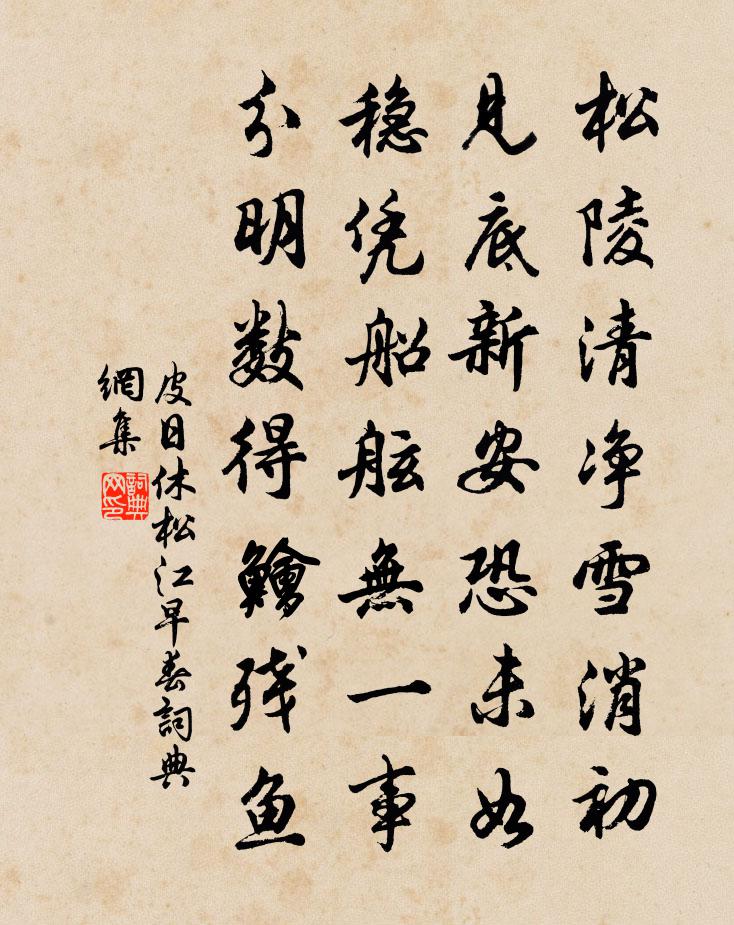 松陵清净雪消初
见底新安恐未如
稳凭船舷無一事
分明数得鱠残鱼
皮日休松江早春詞典
網集
詞典
网印